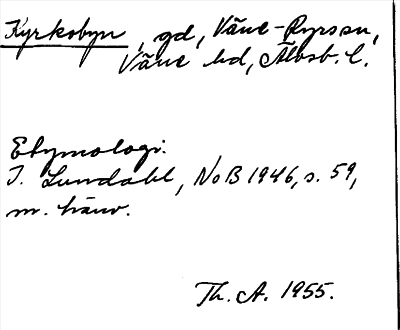 Kyrkobyn, gd, Väne-Ryrssn,
Väne hd, Älvsb. l.
Etymologi:
I. Lundahl, NoB 1946, s. 59,
m. hänv.
Th. A. 1955.